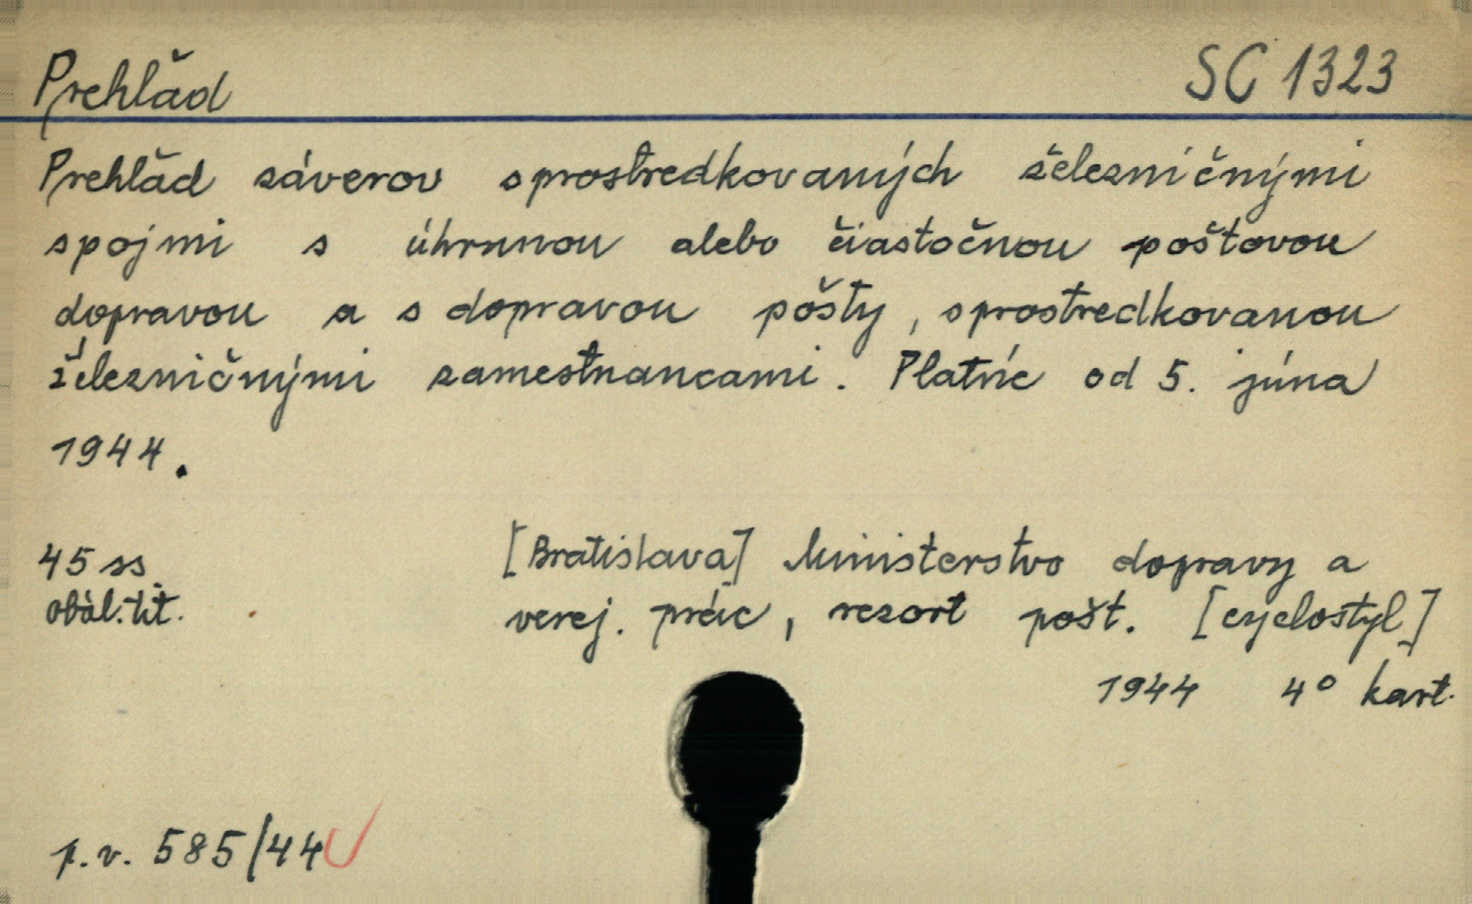 Prehľad SC 1323
Prehľad záverov sprostredkovaných želesničnými
spojmi s úhrnnou alebo čiastočnou poštovou
dopravou a s dopravou pošty, sprostredkovanou
železničnými zamestnancami. Platné od 5. júna
1944.
45 ss [Bratislava] Ministerstvo dopravy a
obál. tit. verej. prác, rezort pošt. [cyclostyl]
1944 4° kart.
p.v. 585/44